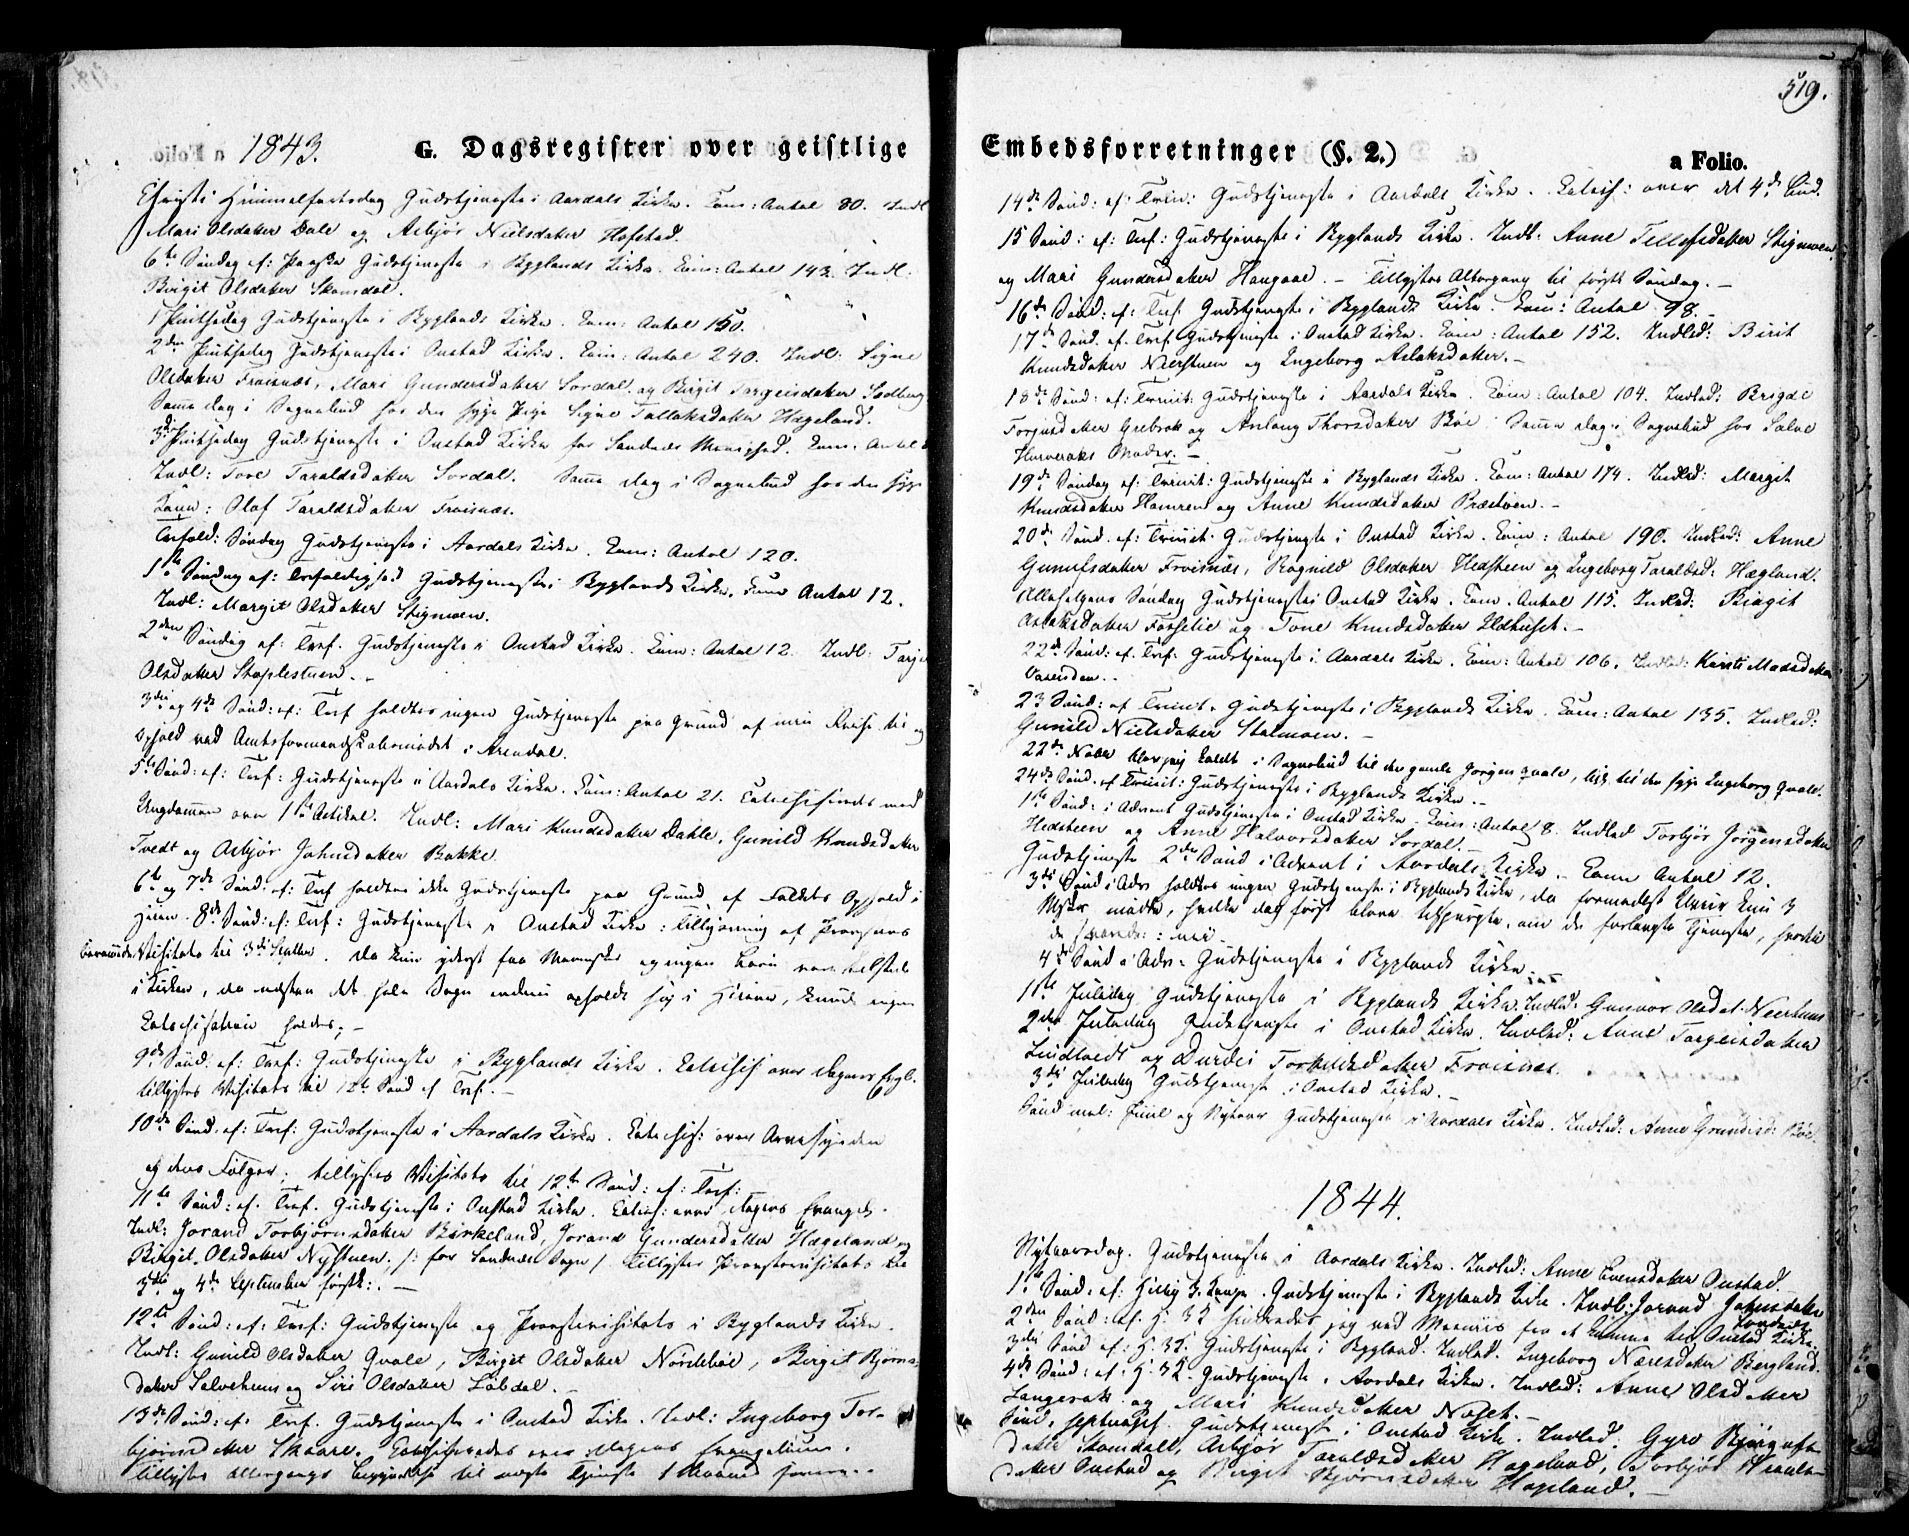 1843. G. Dagsregister over geistlige
Christi Himmelfartsdag Gudstjeneste i Aardals Kirke. Com: Antal 80. Indl:
Mari Olsdatter Dale og Asbjør Nielsdatter Hofstad.
6te Søndag ef: Paaske Gudstjeneste i Byglands Kirke. Com: Antal 143. Indl:
Birgit Olsdatter Skomdal.
1 Pintsedag Gudstjeneste i Byglands Kirke. Com: Antal 150.
2den Pintsedag Gudstjeneste i Oustad Kirke. Com: Antal 240. Indl: Signe
Olsdatter Froisnæs, Mari Gundersdatter Sordal og Birgit Torgeisdatter
Samme dag i Sognebud hos den syge Pige Signe Tallaksdatter Hægeland.
3die Pintsedag Gudstjeneste i Oustad Kirke for Sandnæs Menighed. Com: Antal
Indl: Tore Taraldsdatter Sordal. Samme dag i Sognebud hos den syge
Kone: Olaf Taraldsdatter Froisnæs.
Trefold: Søndag Gudstjeneste i Aardals Kirke. Com: Antal 120.
1ste Søndag ef: Trefoldighed Gudstjeneste i Byglands Kirke. Com Antal 12.
Indl: Margit Olsdatter Stigmoen.
2den Søndag ef: Tref. Gudstjeneste i Oustad Kirke. Com: Antal 12. Indl:
Olsdatter
3die og 4de Sønd: ef: Tref holdtes ingen Gudstjeneste paa Grund af min Reise til og
Ophold ved Amtsformandskabsmødet i Arendal.
5te Sønd: ef: Tref: Gudstjeneste i Aardals Kirke. Com: Antal 21. Catechiseredes med
Ungdommen over 1ste Artikel. Indl: Mari Knudsdatter Dahle, Gunild Knudsdatter
Tvedt og Asbjør Johnsdatter Bakke.
6te og 7de Sønd: ef: Tref holdtes ikke Gudstjeneste paa Grund af Folkets Ophold i
Heien. 8de Sønd: ef: Tref: Gudstjeneste i Oustad Kirke: Tillysning af Provsens
Visitats til 3die Septbr. Da kun yderst faa Mennesker og ingen Børn vare tilstede
i Kirken, da næsten det hele Sogn endnu opholdt sig i Heiene, kunde ingen
Catechisation holdes.
9de Sønd. ef: Tref: Gudstjeneste i Byglands Kirke. Catechis: over Dagens Evgl.
tillystes Visitats til 12te Sønd ef Tref.
10de Sønd. ef: Tref: Gudstjeneste i Aardals Kirke. Catechis: over Arvesynden
og dens Følger; tillystes Visitats til 12te Sønd: ef: Tref:
11te Sønd: ef. Tref. Gudstjeneste i Oustad Kirke. Catech: over Dagens Evangel.
Indl: Jorand Torbjørnsdatter Birkeland, Jorand Gundersdatter Hægeland og
Birgit Olsdatter Nystuen. /: for Sandnæs Sogn / Tillystes Provstevisitats til
3die og 4de September førstk:. —
12te Sønd: ef: Tref: Gudstjeneste og Provstevisitats i Byglands Kirke.
Indl: Gunild Olsdatter Qvale, Birgit Olsdatter Nordebøe, Birgit Bjørns-
datter Solvehuus og Siri Olsdatter Løbdal.
13de Sønd: ef: Tref. Gudstjeneste i Oustad Kirke. Indl: Ingeborg Tor-
bjørnsdatter Skaare. Catechiseredes over Dagens Evangelium.
Tillystes Altergang til næste Tjeneste
519.
Embedsforretninger (§. 2.) a Folio.
14de Sønd: ef: Trin: Gudstjeneste i Aardals Kirke. Catech: over det 4de Bud.
15 Sønd: ef: Tref: Gudstjeneste i Byglands Kirke. Indl: Anne Tellefsdatter Stigmoen
og Mari Gundersdatter Haugaa. — Tillystes Altergang til først Søndag. —
16de Sønd: ef: Tref Gudstjeneste i Byglands Kirke. Com: Antal 98. —
17de Sønd. ef. Tref Gudstjeneste i Oustad Kirke. Com: Antal 152. Indled: Birit
Knudsdatter Neerstuen og Ingeborg Aslaksdatter. —
18de Sønd: ef: Trinit: Gudstjeneste i Aardals Kirke. Com: Antal 104. Indled: Brigde
Torjusdatter Grebrok og Anlaug Thorsdatter Bøe. Samme dag i Sognebud hos Salve
Horveraks Moder. —
19de Søndag ef: Trinit: Gudstjeneste i Byglands Kirke. Com: Antal 174. Indled: Margit
Knudsdatter Hamren og Anne Knudsdatter Præstøen. —
20de Sønd. ef: Trinit: Gudstjeneste i Oustad Kirke. Com: Antal 190. Indled: Anne
Gunufsdatter Froisnæs, Ragnild Olsdatter Hedsteen og Ingeborg Taraldsd: Hægland.
Allehelgens Søndag Gudstjeneste i Oustad Kirke. Com. Antal 115. Indled: Birgit
Aslaksdatter Fosselie og Tone Knudsdatter Ildhuset. —
22de Sønd: ef: Tref: Gudstjeneste i Aardals Kirke. Com: Antal 106. Indled: Kirsti Madsdatter
Vasenden.
23 Sønd: ef Trinit. Gudstjeneste i Byglands Kirke. Com: Antal 135. Indled:
Gunild Nielsdatter Stalmoen. —
22de Novbr blev jeg kaldt i Sognebud til den gamle Jørgen Qvale, lig: til den syge Ingeborg Qvale.
24de Sønd. ef Trinit: Gudstjeneste i Byglands Kirke. —
1ste Sønd: i Advent Gudstjeneste i Oustad Kirke. Com: Antal 8. Indled Torbjør Jørgensdatter
Hedsteen og Anne Halvorsdatter Sordal. —
Gudstjeneste 2den Sønd i Advent i Aardals Kirke. Com Antal 12.
3die Sønd i Adv holdtes ingen Gudstjeneste i Byglands Kirke, da formedelst Uveir kun 3
Msker mødte, hvilke dog først bleve tilspurgte, om de forlangte Tjeneste, hvortil
de svarede: nei.
4de Sønd i Adv: Gudstjeneste i Byglands Kirke. —
1ste Juledag Gudstjeneste i Byglands Kirke. Indled: Gunvor Olsdat. Neerhuus
2den Juledag Gudstjeneste i Oustad Kirke. Indled: Anne Torgeisdatter
Lindtveit og Durdei Torkildsdatter Froisnæs.
3die Juledag Gudstjeneste i Oustad Kirke. —
Sønd mel: Juul og Nytaar Gudstjeneste i Aardals Kirke. Indled: Anne Gundersd: Bøe.
1844.
Nytaarsdag. Gudstjeneste i Aardals Kirke. Indled: Anne Evensdatter Oustad.
1ste Sønd: ef: Hellig 3 Konger. Gudstjeneste i Byglands Kirke. Indl: Jorand Johnsdatter
2den Sønd: ef. H. 3 K hindredes jeg ved Meenis fra at komme til Oustad Kirke.
3die Sønd ef: H. 3K. Gudstjeneste i Bygland. Indled. Ingeborg Næresdatter Bergland.
4de Sønd: ef: H: 3K. Gudstjeneste i Aardals Kirke. Indled: Anne Olsdatter
Langerak og Mari Knudsdatter Neset. —
Sønd: Septuages. Gudstjeneste i Oustad Kirke. Indled. Gyro Bjørgufs-
datter Skomdal, Asbjør Taraldsdatter Hægeland, Torbjør
datter Oustad og Birgit Bjørnsdatter Hægeland. —